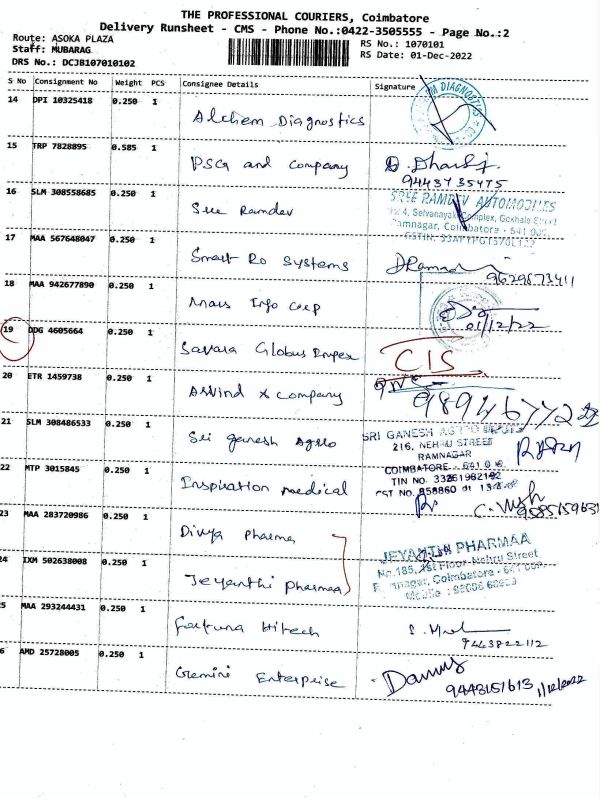 THE PROFESSIONAL COURIERS, Coimbatore
Delivery Runsheet - CMS - Phone No.:0422-3505555 - Page No.:2
Route: ASOKA PLAZA
RS No.: 1070101
Staff: MUBARAG
RS Date: 01-Dec-2022
DRS No.: DCJB107010102
S No Consignment No Weight PCS Consignee Details Signature
14 DPI 10325418 0.250 1
Alchem Diagnostics
15 TRP 7828895 0.585 1
PSG and Company
9443735475
16 SLM 308558685 0.250 1
SREE RAMDEV AUTOMOBILES
Complex, Gokhale Street
Ramnagar, Coimbatore - 641 009
Sree Ramdev
17 MAA 567648047 0.250 1
Smart Ro Systems
9629873411
18 MAA 942677890 0.250 1
Info Corp
01/12/22
19 DDG 4605664 0.250 1
Savara Globus Impex
CIS
20 ETR 1459738 0.250 1
Arvind & Company
21 SLM 308486533 0.250 1
Sri Ganesh Agro
SRI GANESH
216, NEHRU STREET
RAMNAGAR
COIMBATORE - 641 0
TIN No. 33261962192
CST NO. 858860 dt
22 MTP 3015845 0.250 1
Inspiration medical
23 MAA 283720986 0.250 1
Divya Pharma
JEYANTHI PHARMAA
No.185, 1st Floor, Nehru Street
Coimbatore - 641 009
24 IXM 502638008 0.250 1
Jeyanthi Pharmaa
MAA 293244431 0.250 1
Fortuna Hitech
9443822112
AMD 25728005 0.250 1
Gemini Enterprise
9443151613 1/12/2022